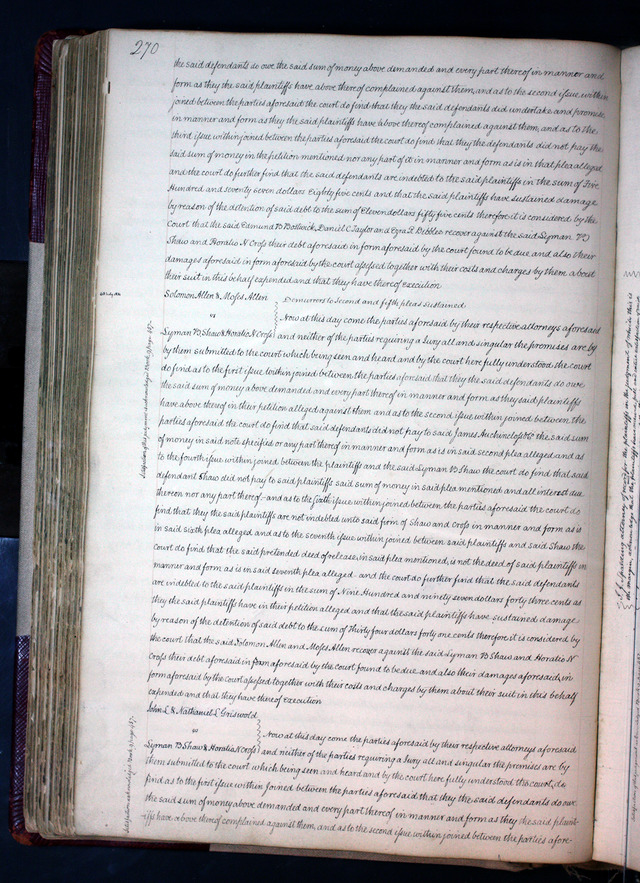 270
the said defendants do owe the said sum of money above demanded and every part thereof in manner and
form as they the said plaintiffs have above thereof complained against them, and as to the second issue, within
joined between the parties aforesaid the court do find that they the said defendants did undertake and promise
in manner and form as they the said plaintiffs have above thereof complained against them, and as to the
third issue within joined between the parties aforesaid the court do find that they the defendants did not pay the
said sum of money in the petition mentioned nor any part of it in manner and form as is in that plea alleged
and the court do further find that the said defendants are indebted to the said plaintiffs in the sum of Five
Hundred and seventy seven dollars Eighty five cents and that the said plaintiffs have sustained damage
by reason of the detention of said debt to the sum of Eleven dollars fifty five cents therefore it is considered by the
Court that the said Edmund B Bostwick, Daniel C Taylor and Ezra L Peebles recover against the said Lyman B
Shaw and Horatio N Cross their debt aforesaid in form aforesaid by the court found to be due and also their
damages aforesaid in form aforesaid by the court assessed together with their costs and charges by them about
their suit in this behalf expended and that they have thereof execution
Solomon Allen & Moses Allen
Demurrers to second and fifth pleas sustained
vs
Now at this day come the parties aforesaid by their respective attorneys aforesaid
Lyman B Shaw & Horatio N Cross and neither of the parties requiring a Jury all and singular the premises are by
by them submitted to the court which being seen and heard and by the court here fully understood the court
do find as to the first issue within joined between the parties aforesaid that they the said defendants do owe
the said sum of money above demanded and every part thereof in manner and form as they said plaintiffs
have above thereof in their petition alleged against them and as to the second issue within joined between the
parties aforesaid the court do find that said defendants did not pay to said James the said sum
of money in said note specified or any part thereof in manner and form as is in said second plea alleged and as
to the fourth issue within joined between the plaintiffs and the said Lyman B Shaw the court do find that said
defendant Shaw did not pay to said plaintiffs said sum of money in said plea mentioned and all interest due
thereon nor any part thereof - and as to the sixth issue within joined between the parties aforesaid the court do
find that they the said plaintiffs are not indebted unto said firm of Shaw and Cross in manner and form as is
in said sixth plea alleged and as to the seventh issue within joined between said plaintiffs and said Shaw the
Court do find that the said pretended deed of release, in said plea mentioned, is not the deed of said plaintiffs in
manner and form as is in said seventh plea alleged - and the court do further find that the said defendants
are indebted to the said plaintiffs in the sum of Nine Hundred and ninety seven dollars forty three cents as
they the said plaintiffs have in their petition alleged and that the said plaintiffs have sustained damage
by reason of the detention of said debt to the sum of thirty four dollars forty one cents therefore it is considered by
the court that the said Solomon Allen and Moses Allen recover against the said Lyman B Shaw and Horatio N
Cross their debt aforesaid in form aforesaid by the court found to be due and also their damages aforesaid, in
form aforesaid by the court assessed together with their costs and charges by them about their suit in this behalf
expended and that they have thereof execution
John L & Nathaniel L Griswold
vs
Now at this day come the parties aforesaid by their respective attorneys aforesaid
Lyman B Shaw & Horatio N Cross and neither of the parties requiring a Jury all and singular the premises are by
them submitted to the court which being seen and heard and by the court here fully understood this court, do
find as to the first issue within joined between the parties aforesaid that they the said defendants do owe
the said sum of money above demanded and every part thereof in manner and form as they the said plaint-
iffs have above thereof complained against them, and as to the second issue within joined between the parties afore-